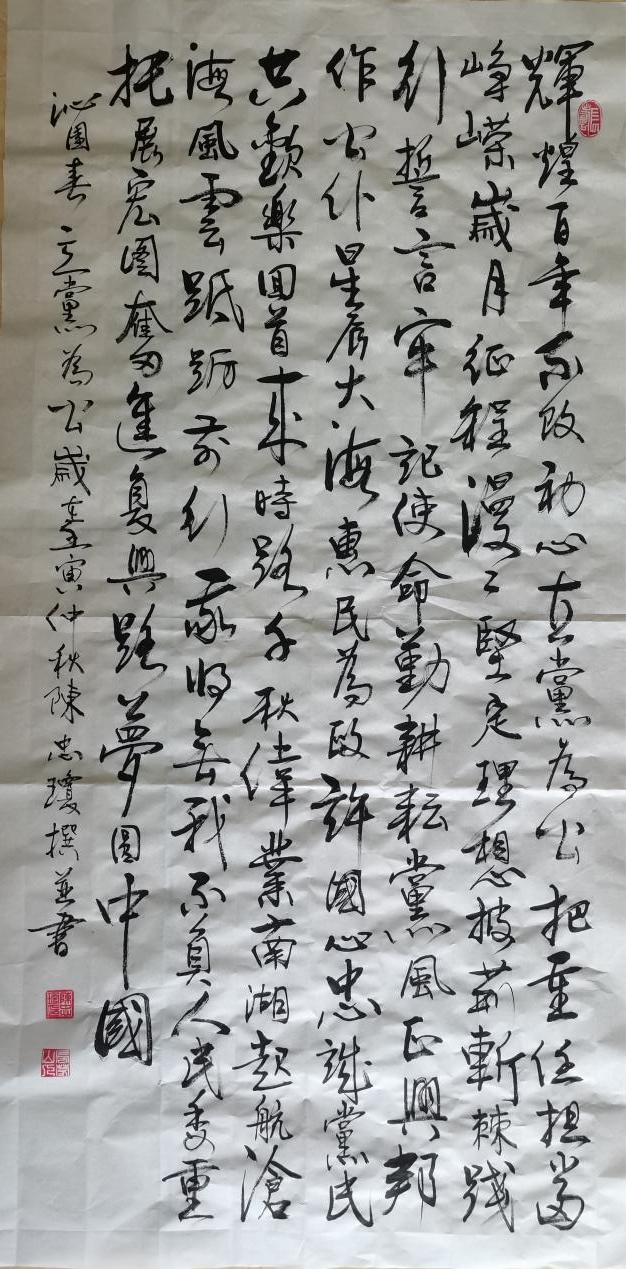 輝煌百年不改初心立黨為公把重任担當
崢嶸歲月征程漫々堅定理想披荆斬棘踐
行誓言牢記使命勤耕耘黨風正興邦
作公仆星辰大海惠民為政許國心忠誠黨民
共歡樂回首來時路千秋偉業南湖起航滄
海風雲砥砺前行我將無我不負人民委重
托展宏圖奮進复興路夢圓中國
沁園春 立黨為公 歲在壬寅仲秋陳忠瓊撰並書